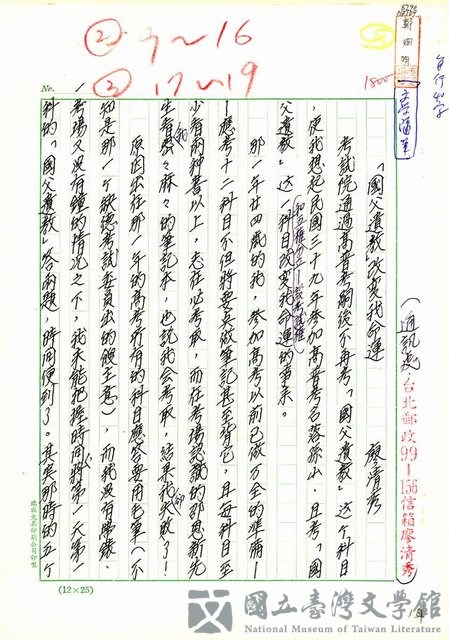 ② 9~16
② 17~19
1800
自行出字
No.
「國父遺教」改變我命運
廖清秀
(通訊處:台北郵政99-156信箱廖清秀)
考試院通過高普考嗣後不再考「國父遺教」這个科目
,使我想起民國三十九年參加高普考名落孫山,且考「國
父遺教」這一科目改變我命運的事來。
那一年廿四歲的我,參加高考以前已做万全的準備—
—應考十二科目不但將要点做筆記甚至背它,且每科目至
少看兩种書以上,志在必考取,而在考場認識的那恩新先
生看我密々麻々的筆記本,也說我会考取,結果我却失敗了!
原因出在那一年的高考所有的科目應答要用毛筆(不
知是那一个缺德考試委員出的餿主意),而我沒有帶錶,
考場又沒有鐘的情況之下,我未能把握時間,將第一天第一
科的「國父遺教」答兩題,時間便到了。其實那時的五个
(12×25)
國立臺灣文學館
National Museum of Taiwan Literature